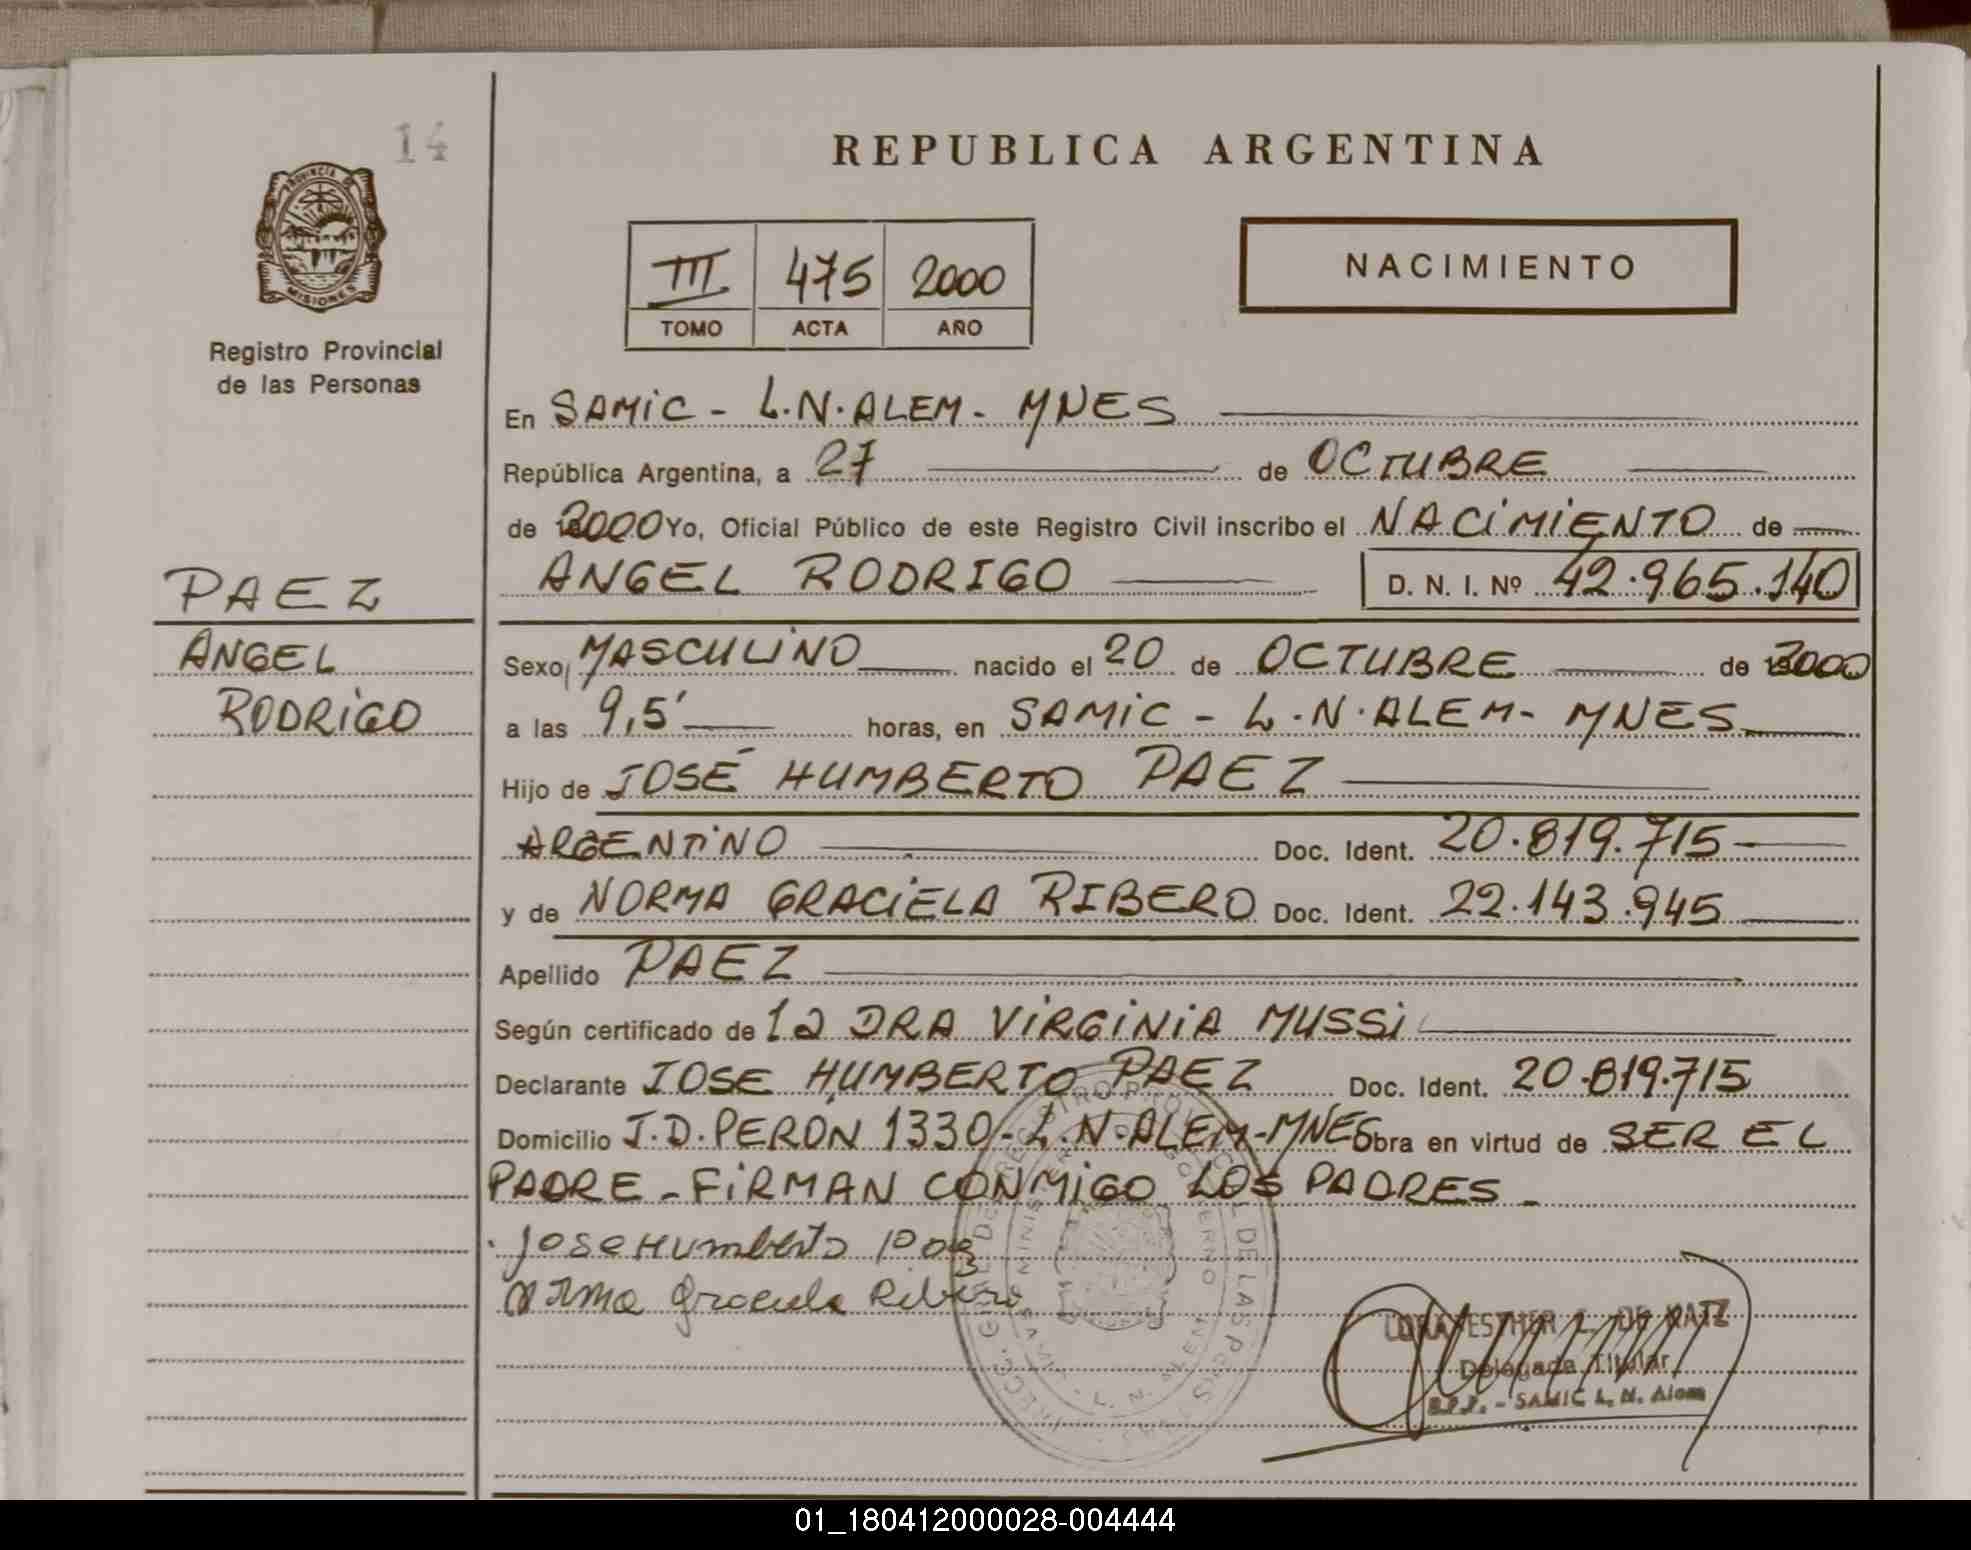 14
PROVINCIA DE
MISIONES
Registro Provincial
de las Personas
PAEZ
ANGEL
RODRIGO
REPUBLICA ARGENTINA
III 475 2000
TOMO ACTA AÑO
NACIMIENTO
En SAMIC - L.N.ALEM - MNES
República Argentina, a 27 de OCTUBRE
de 2000 Yo, Oficial Público de este Registro Civil inscribo el NACIMIENTO de
ANGEL RODRIGO D. N. I. Nº 42.965.140
Sexo MASCULINO nacido el 20 de OCTUBRE de 2000
a las 9,5' horas, en SAMIC - L.N.ALEM - MNES
Hijo de JOSÉ HUMBERTO PAEZ
ARGENTINO Doc. Ident. 20.819.715
y de NORMA GRACIELA RIBERO Doc. Ident. 22.143.945
Apellido PAEZ
Según certificado de la DRA VIRGINIA MUSSI
Declarante JOSE HUMBERTO PAEZ Doc. Ident. 20.819.715
Domicilio J.D.PERÓN 1330 - L.N.ALEM - MNES Obra en virtud de SER EL
PADRE - FIRMAN CONMIGO LOS PADRES -
Jose Humberto Paez
Norma Graciela Ribero
ESTHER DE
Delegada Titular
R.P.P. - SAMIC L. N. Alem
01_180412000028-004444